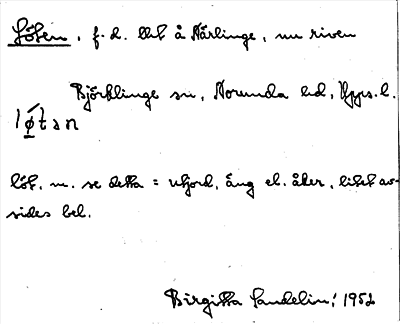 Löten, f.d. utk å Närlinge, nu riven
Björklinge sn, Norunda hd, Upps. l.
løtən
löt, m. se detta = utjord, äng el. åker, litet av-
sides bel.
Birgitta Sandelin, 1952